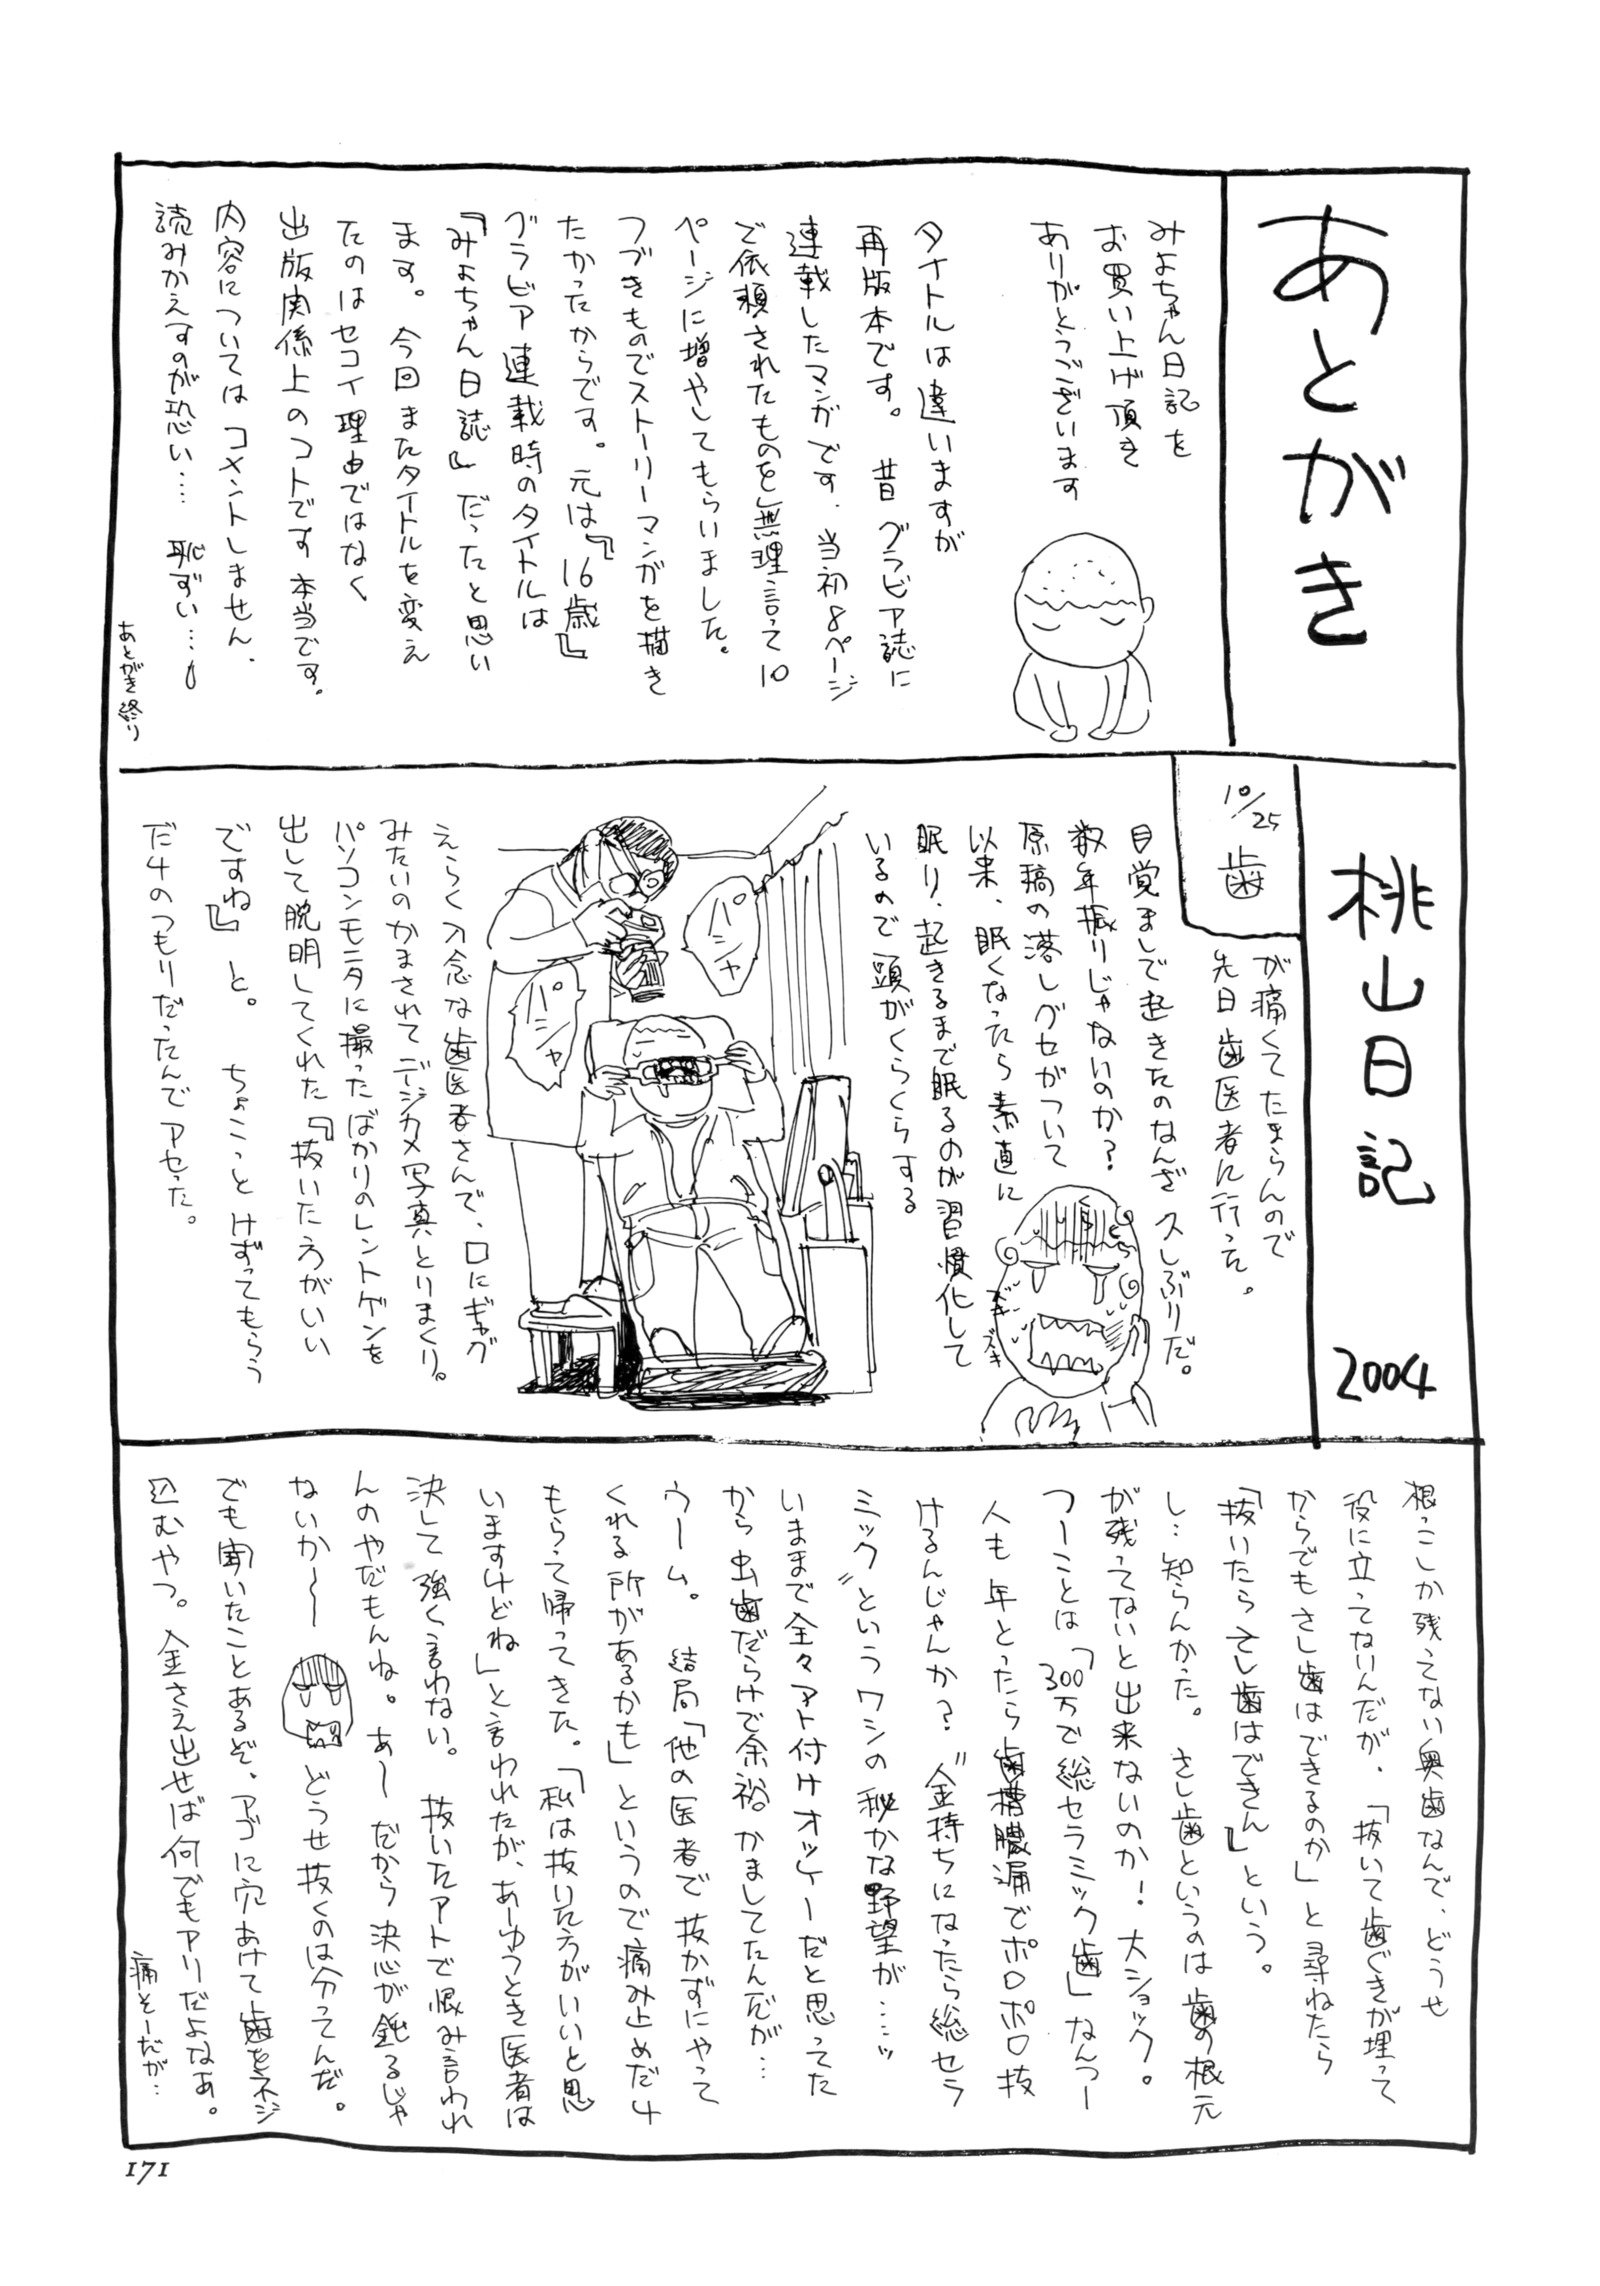 あとがき
みよちゃん日記を
お買い上げ頂き
ありがとうございます
タイトルは違いますが
再版本です。昔グラビア誌に
連載したマンガです.当初8ページ
で依頼されたものを無理言って10
ページに増やしてもらいました。
つづきものでストーリーマンガを描き
たかったからです。元は『16歳』
グラビア連載時のタイトルは
『みよちゃん日誌』だったと思い
ます。今回またタイトルを変え
たのはセコイ理由ではなく
出版関係上のコトです本当です。
内容についてはコメントしません.
読みかえすのが恐い…. 恥ずい…。
あとがき終り
桃山日記 2004
10/25 歯
が痛くてたまらんので
先日歯医者に行った。
目覚ましで起きたのなんざ久しぶりだ。
数年振りじゃないのか?
原稿の落しグセがついて
以来、眠くなったら素直に
眠り、起きるまで眠るのが習慣化して
いるので頭がくらくらする
ズキ
ズキ
パシャ
パシャ
えらく入念な歯医者さんで、口にギャグ
みたいのかまされてデジカメ写真とりまくり。
パソコンモニタに撮ったばかりのレントゲンを
出して説明してくれた『抜いた方がいい
ですね』と。ちょこっとけずってもらう
だ4のつもりだったんでアセった。
根っこしか残ってない奥歯なんで、どうせ
役に立ってないんだが、「抜いて歯ぐきが埋って
からでもさし歯はできるのか」と尋ねたら
「抜いたらさし歯はできん」という。
し…知らんかった。さし歯というのは歯の根元
が残ってないと出来ないのか!大ショック。
つーことは「300万で総セラミック歯」なんつー
人も年とったら歯槽膿漏でポロポロ抜
けるんじゃんか?〝金持ちになったら総セラ
ミック〟というワシの秘かな野望が……ッ
いままで全々アト付けオッケーだと思ってた
から虫歯だらけで余裕かましてたんだが…
ウーム。結局「他の医者で抜かずにやって
くれる所があるかも」というので痛み止めだ4
もらって帰ってきた。「私は抜いた方がいいと思
いますけどね」と言われたが、あーゆうとき医者は
決して強く言わない。抜いたアトで恨み言われ
んのやだもんね。あー だから決心が鈍るじゃ
ないか〜 どうせ抜くのは分ってんだ。
でも聞いたことあるぞ、アゴに穴あけて歯をネジ
込むやつ。金さえ出せば何でもアリだよなあ。
痛そーだが…
171